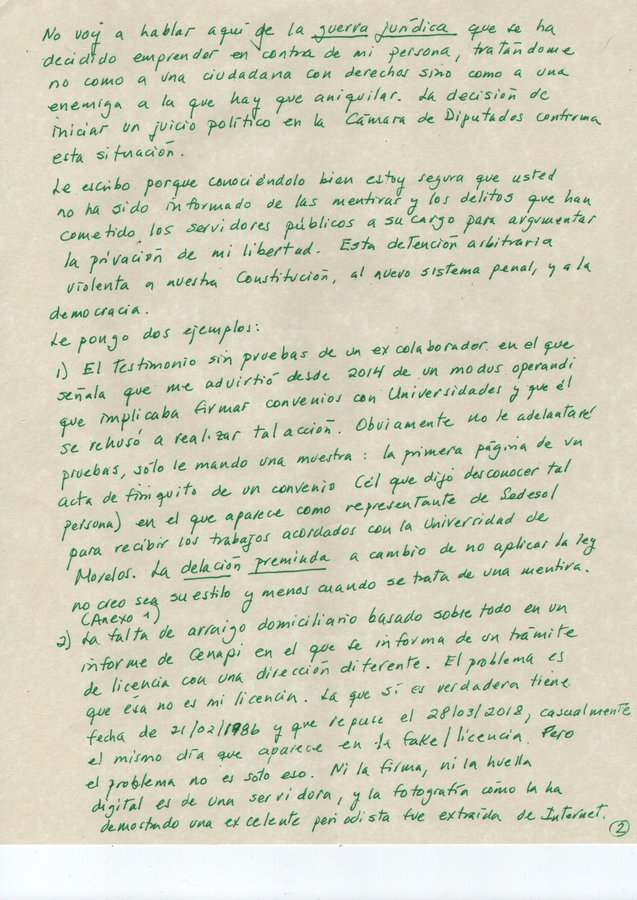 No voy a hablar aquí de la guerra jurídica que se ha
decidido emprender en contra de mi persona, tratándome
no como a una ciudadana con derechos sino como a una
enemiga a la que hay que aniquilar. La decisión de
iniciar un juicio político en la Cámara de Diputados confirma
esta situación.
Le escribo porque conociéndolo bien estoy segura que usted
no ha sido informado de las mentiras y los delitos que han
cometido los servidores públicos a su cargo para argumentar
la privación de mi libertad. Esta detención arbitraria
violenta a nuestra Constitución, al nuevo sistema penal, y a la
democracia.
Le pongo dos ejemplos:
1) El testimonio sin pruebas de un ex colaborador en el que
señala que me advirtió desde 2014 de un modus operandi
que implicaba firmar convenios con Universidades y que él
se rehusó a realizar tal acción. Obviamente no le adelantaré
pruebas, sólo le mando una muestra: la primera página de un
acta de finiquito de un convenio (él que dijo desconocer tal
persona) en el que aparece como representante de Sedesol
para recibir los trabajos acordados con la Universidad de
Morelos. La delación premiada a cambio de no aplicar la ley
no creo sea su estilo y menos cuando se trata de una mentira.
(Anexo 1)
2) La falta de arraigo domiciliario basado sobre todo en un
informe de Cenapi en el que se informa de un trámite
de licencia con una dirección diferente. El problema es
que ésa no es mi licencia. La que sí es verdadera tiene
fecha de 21/02/1986 y que repuse el 28/03/2018, casualmente
el mismo día que aparece en la fake/licencia. Pero
el problema no es sólo eso. Ni la firma, ni la huella
digital es de una servidora, y la fotografía como la ha
demostrado una excelente periodista fue extraída de Internet.
2